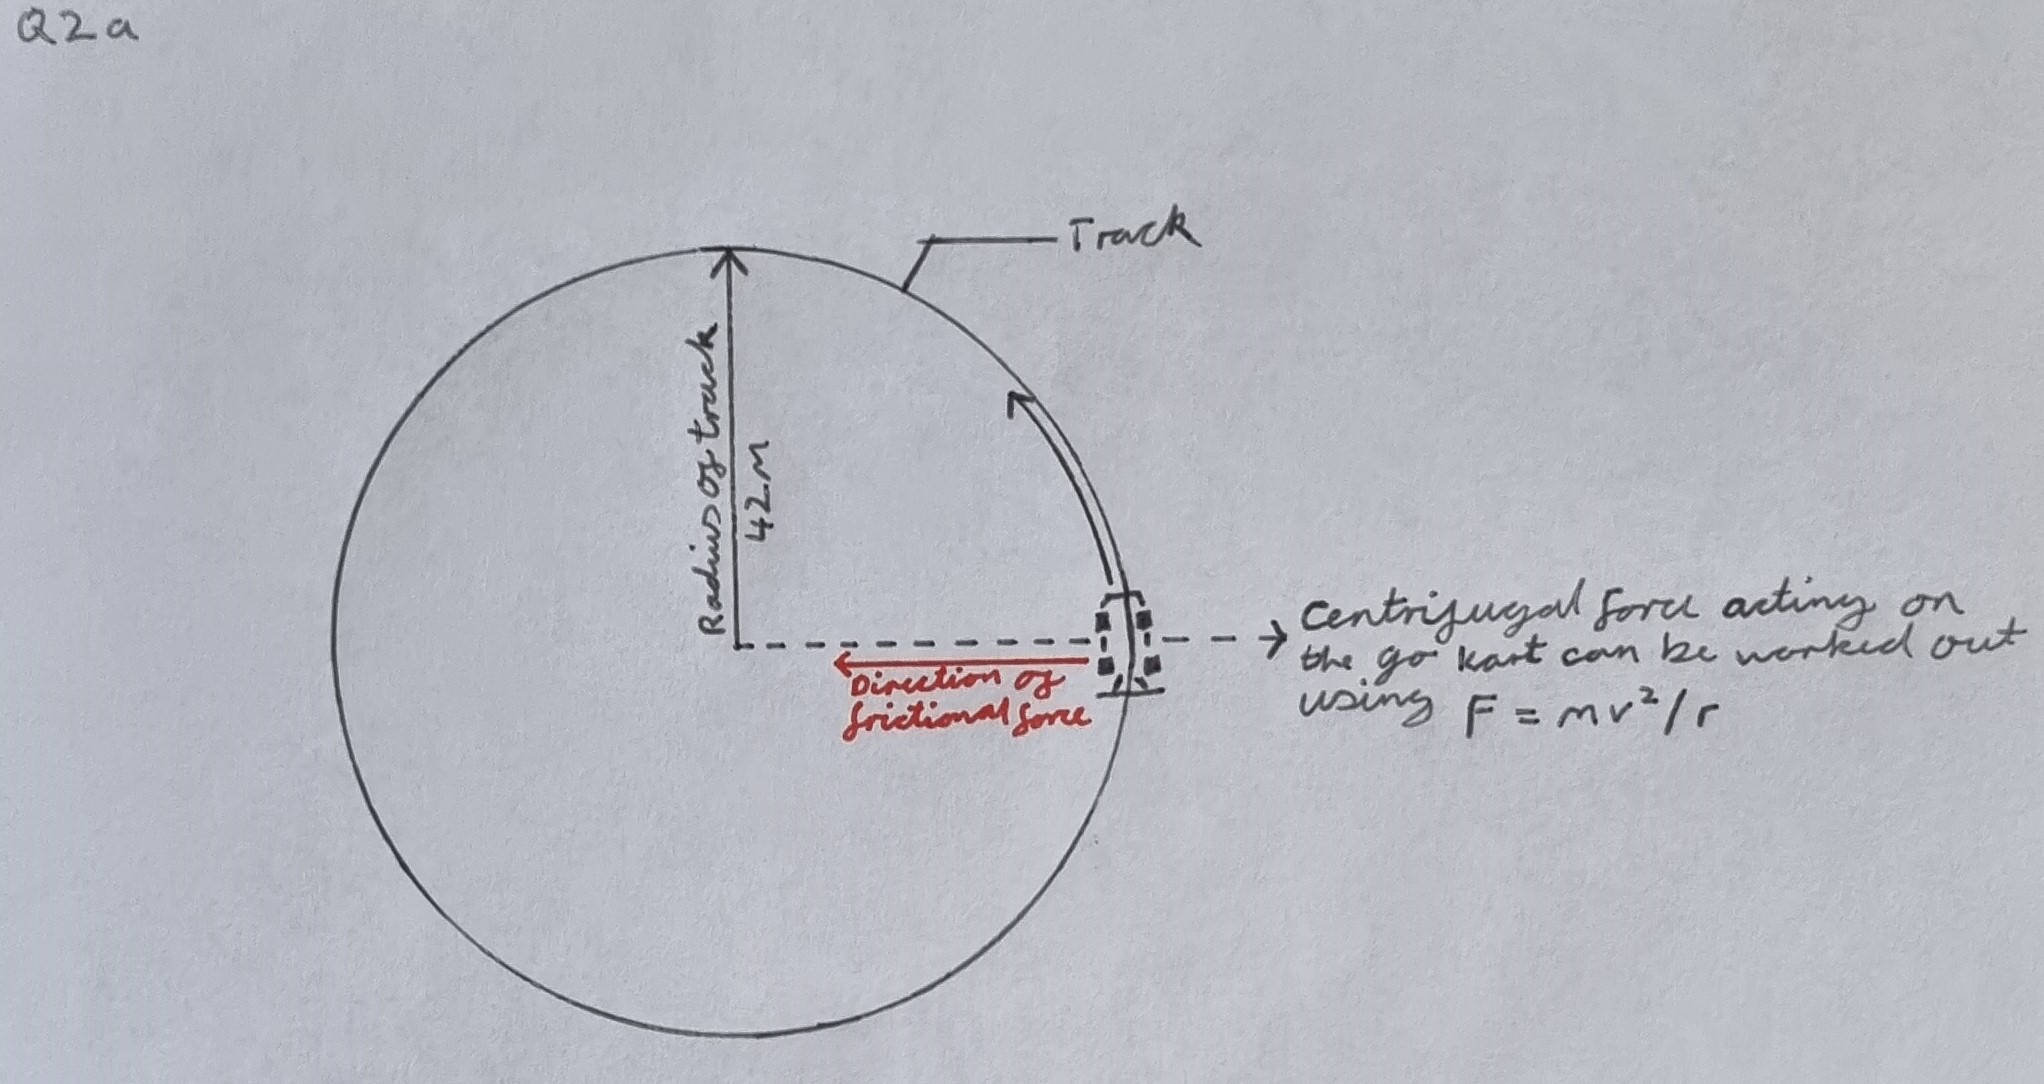 Q2a
Track
Radius of track
42m
Centrifugal force acting on
the go kart can be worked out
using F = mv²/r
Direction of
frictional force